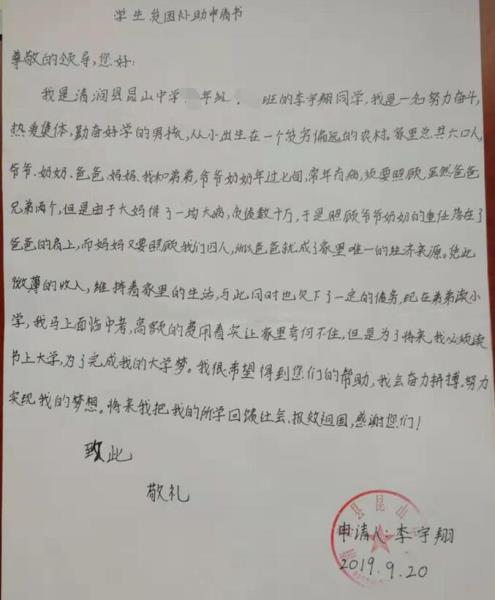 学生贫困补助申请书
尊敬的领导,您好:
我是清润县昆山中学 年级 班的李宇翔同学,我是一名努力奋斗,
热爱集体,勤奋好学的男孩,从小出生在一个贫穷偏远的农村。家里总共六口人,
爷爷、奶奶、爸爸、妈妈、我和弟弟,爷爷奶奶年过七旬,常年有病,须要照顾,虽然爸爸
兄弟两个,但是由于大妈得了一场大病,欠债数十万,于是照顾爷爷奶奶的重任落在了
爸爸的肩上,而妈妈又要照顾我们四人,所以爸爸就成了家里唯一的经济来源。凭此
微薄的收入,维持着家里的生活,与此同时也欠下了一定的债务,现在弟弟读小
学,我马上面临中考,高额的费用着实让家里奇何不住,但是为了将来,我必须读
书上大学,为了完成我的大学梦。我很希望得到您们的帮助,我会奋力拼搏,努力
实现我的梦想。将来我把我的所学回馈社会、报效祖国,感谢您们!
致此
敬礼
申请人:李宇翔
2019.9.20